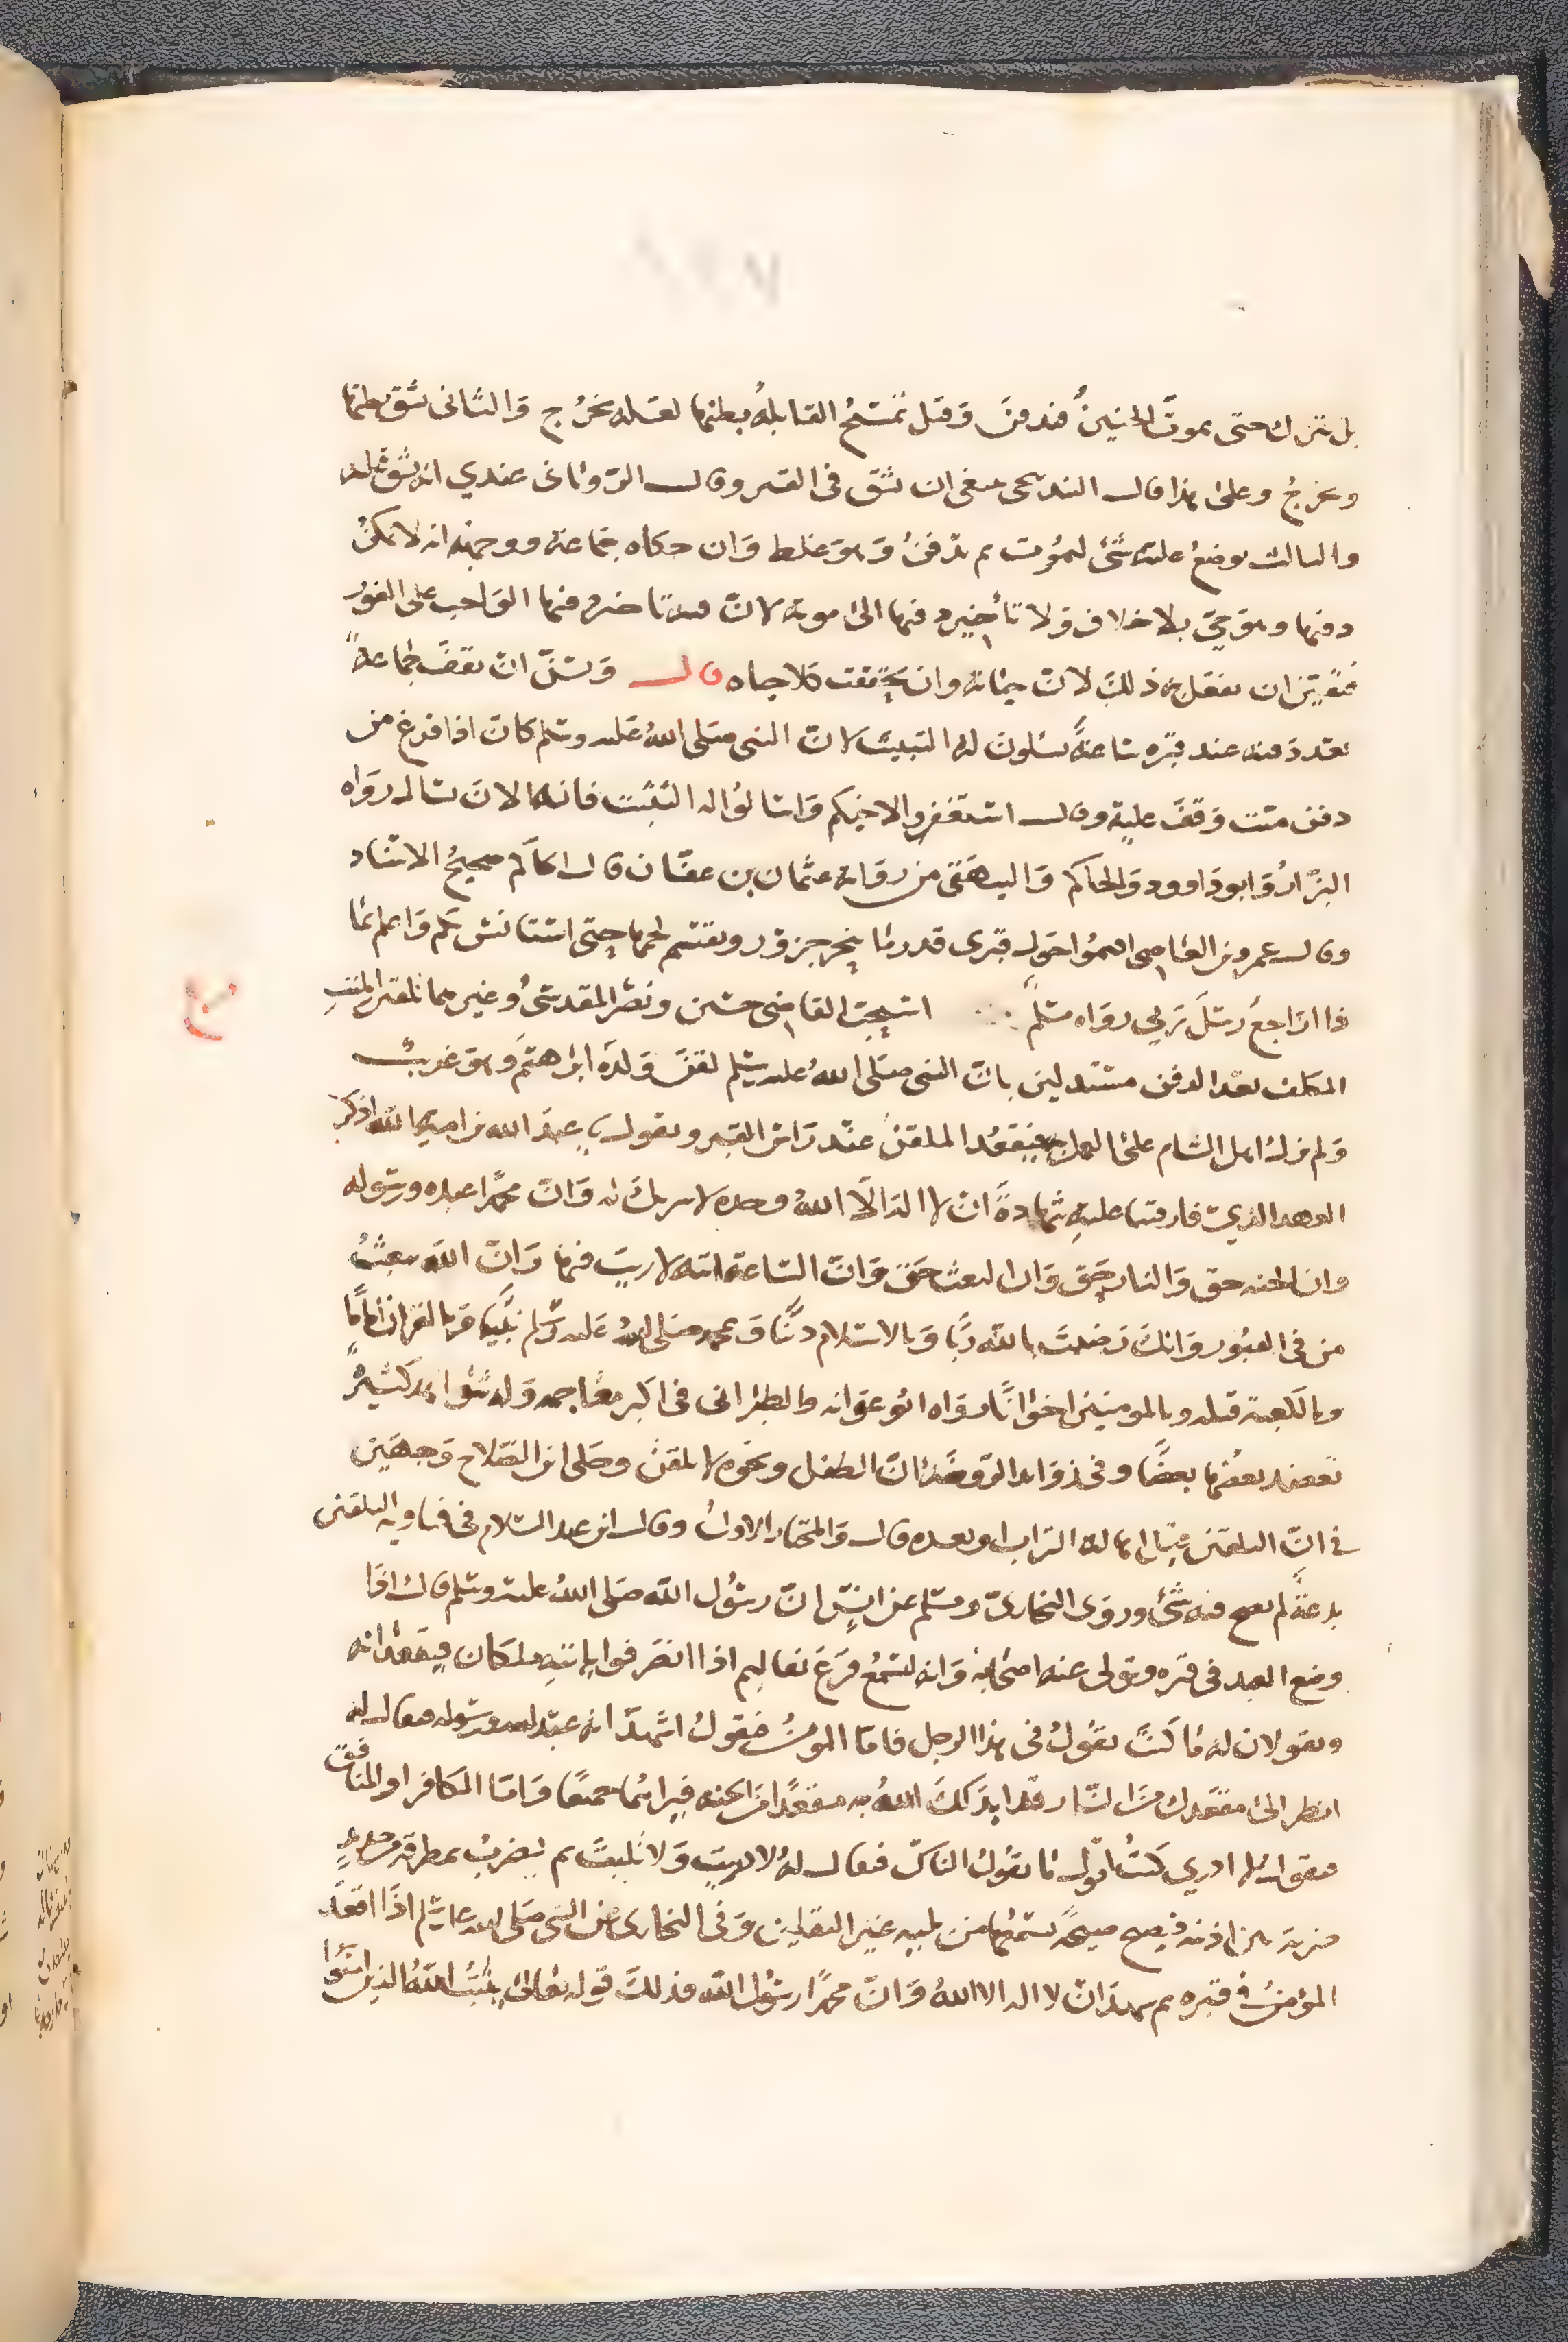 بل تترك حتى يموت الجنين فتدفن وقيل تمسح القابلة بطنها لعله يخرج والثاني تشق بطنها
ويخرج وعلى هذا قال البندنيجي ينبغي ان تشق في القبر وقال الروياني عندي انه تشق
والثالث يوضع عليه شيء ليموت ثم تدفن وهو غلط وان حكاه جماعة ووجهه انه لا يمكن
دفنها وهو حي بلا خلاف ولا تأخير دفنها الى موته لان تأخير دفنها الواجب على الفور
فتعين ان نفعل به ذلك لان حياته وان تحققت كلا حياه قال وسن ان يقف جماعة
بعد دفنه عند قبره ساعة يسئلون له التثبيت لان النبي صلى الله عليه وسلم كان اذا فرغ من
دفن ميت وقف عليه وقال استغفروا لاخيكم واسالوا له التثبت فانه الان يسال رواه
البزار وابو داوود والحاكم والبيهقي من رواية عثمان بن عفان قال الحاكم صحيح الاسناد
وقال عمرو بن العاصي اقيموا حول قبري قدر ما ينحر جزور ويقسم لحمها حتى استانس بكم واعلم ما
ذا اراجع رسل ربي رواه مسلم ∴ استحب القاضي حسين ونصر المقدسي وغيرهما تلقين الميت
المكلف بعد الدفن مستدلين بان النبي صلى الله عليه وسلم لقن ولده ابراهيم وهو غريب
ولم يزل اهل الشام على العمل به فيقعد الملقن عند راس القبر ويقول يا عبد الله بن امة الله اذكر
العهد الذي فارقتنا عليه شهادة ان لا اله الا الله وحده لا شريك له وان محمدا عبده ورسوله
وان الجنه حق والنار حق وان البعث حق وان الساعة اتيه لا ريب فيها وان الله يبعث
من في القبور وانك رضيت بالله ربا وبالاسلام دينا وبمحمد صلى الله عليه وسلم نبيا وبالقران اماما
وبالكعبة قبله وبالمومنين اخوانا رواه ابو عوانه والطبراني في اكبر معاجمه وله شواهد كثيره
يعضد بعضها بعضا وفي زوائد الروضة ان الطفل ونحوه لا يلقن وحكى ابن الصلاح وجهين
في ان التلقين قبل اهالة التراب او بعده قال والمختار الاول وقال ابن عبد السلام في فتاويه التلقين
بدعة لم يصح فيه شيء وروى البخاري ومسلم عن انس ان رسول الله صلى الله عليه وسلم قال اذا
وضع العبد في قبره وتولى عنه اصحابه وانه ليسمع قرع نعالهم اذا انصرفوا ياتيه ملكان فيقعدانه
ويقولان له ما كنت تقول في هذا الرجل فاما المومن فيقول اشهد انه عبد الله ورسوله فيقال له
انظر الى مقعدك من النار قد ابدلك الله به مقعدا من الجنه فيراهما جميعا واما الكافر او المنافق
فيقول لا ادري كنت اقول ما يقول الناس فيقال له لا دريت ولا تليت ثم يضرب بمطرقه من حديد
ضربة بين اذنيه فيصيح صيحة يسمعها من يليه غير الثقلين وفي البخاري عن النبي صلى الله عليه وسلم اذا اقعد
المؤمن في قبره ثم شهد ان لا اله الا الله وان محمدا رسول الله فذلك قوله تعالى يثبت الله الذين امنوا